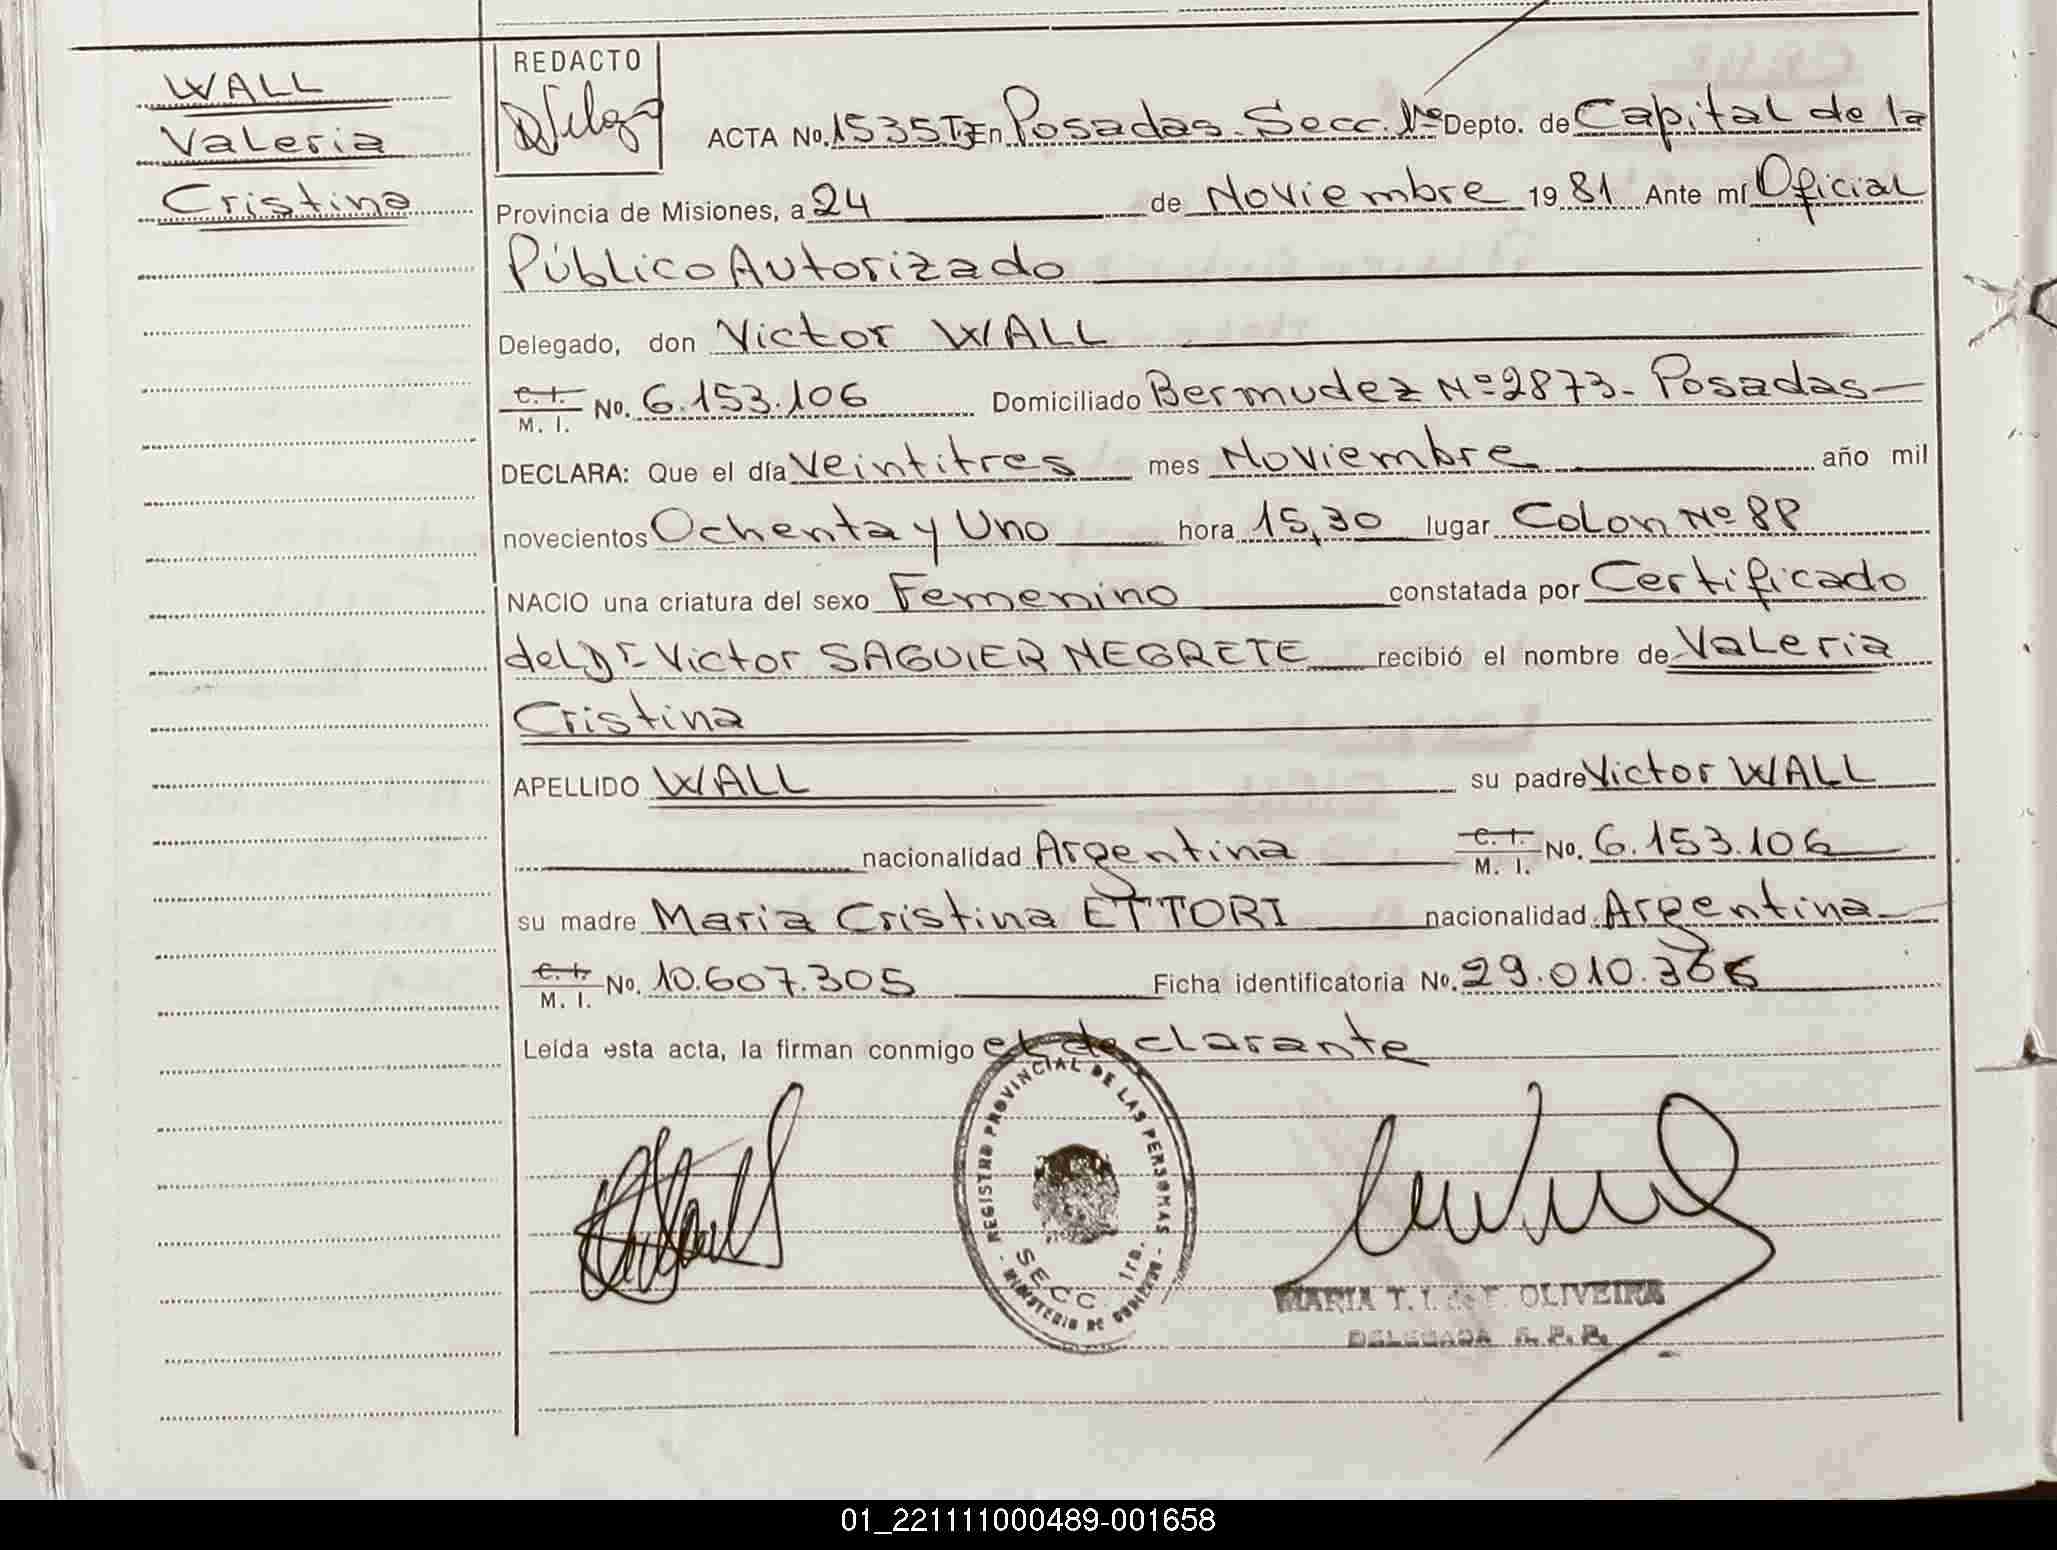 WALL
Valeria
Cristina
REDACTO
ACTA No. 1535 En Posadas. Secc. 1ª Depto. de Capital de la
Provincia de Misiones, a 24 de Noviembre 1981 Ante mí Oficial
Público Autorizado
Delegado, don Victor WALL
C. I.
M. I. No. 6.153.106 Domiciliado Bermudez Nº 2873 - Posadas
DECLARA: Que el día veintitres mes Noviembre año mil
novecientos Ochenta y Uno hora 15,30 lugar Colon Nº 88
NACIO una criatura del sexo Femenino constatada por Certificado
del Dr Victor SAGUIER NEGRETE recibió el nombre de Valeria
Cristina
APELLIDO WALL su padre Victor WALL
nacionalidad Argentina C. I.
M. I. No. 6.153.106
su madre Maria Cristina ETTORI nacionalidad Argentina
C. I.
M. I. No. 10.607.305 Ficha identificatoria No. 29.010.366
Leída esta acta, la firman conmigo el declarante
REGISTRO PROVINCIAL DE LAS PERSONAS
SECC. 1ra.
- MINISTERIO DE GOBIERNO -
MARIA T. I. de OLIVEIRA
DELEGADA R. P. P.
01_221111000489-001658